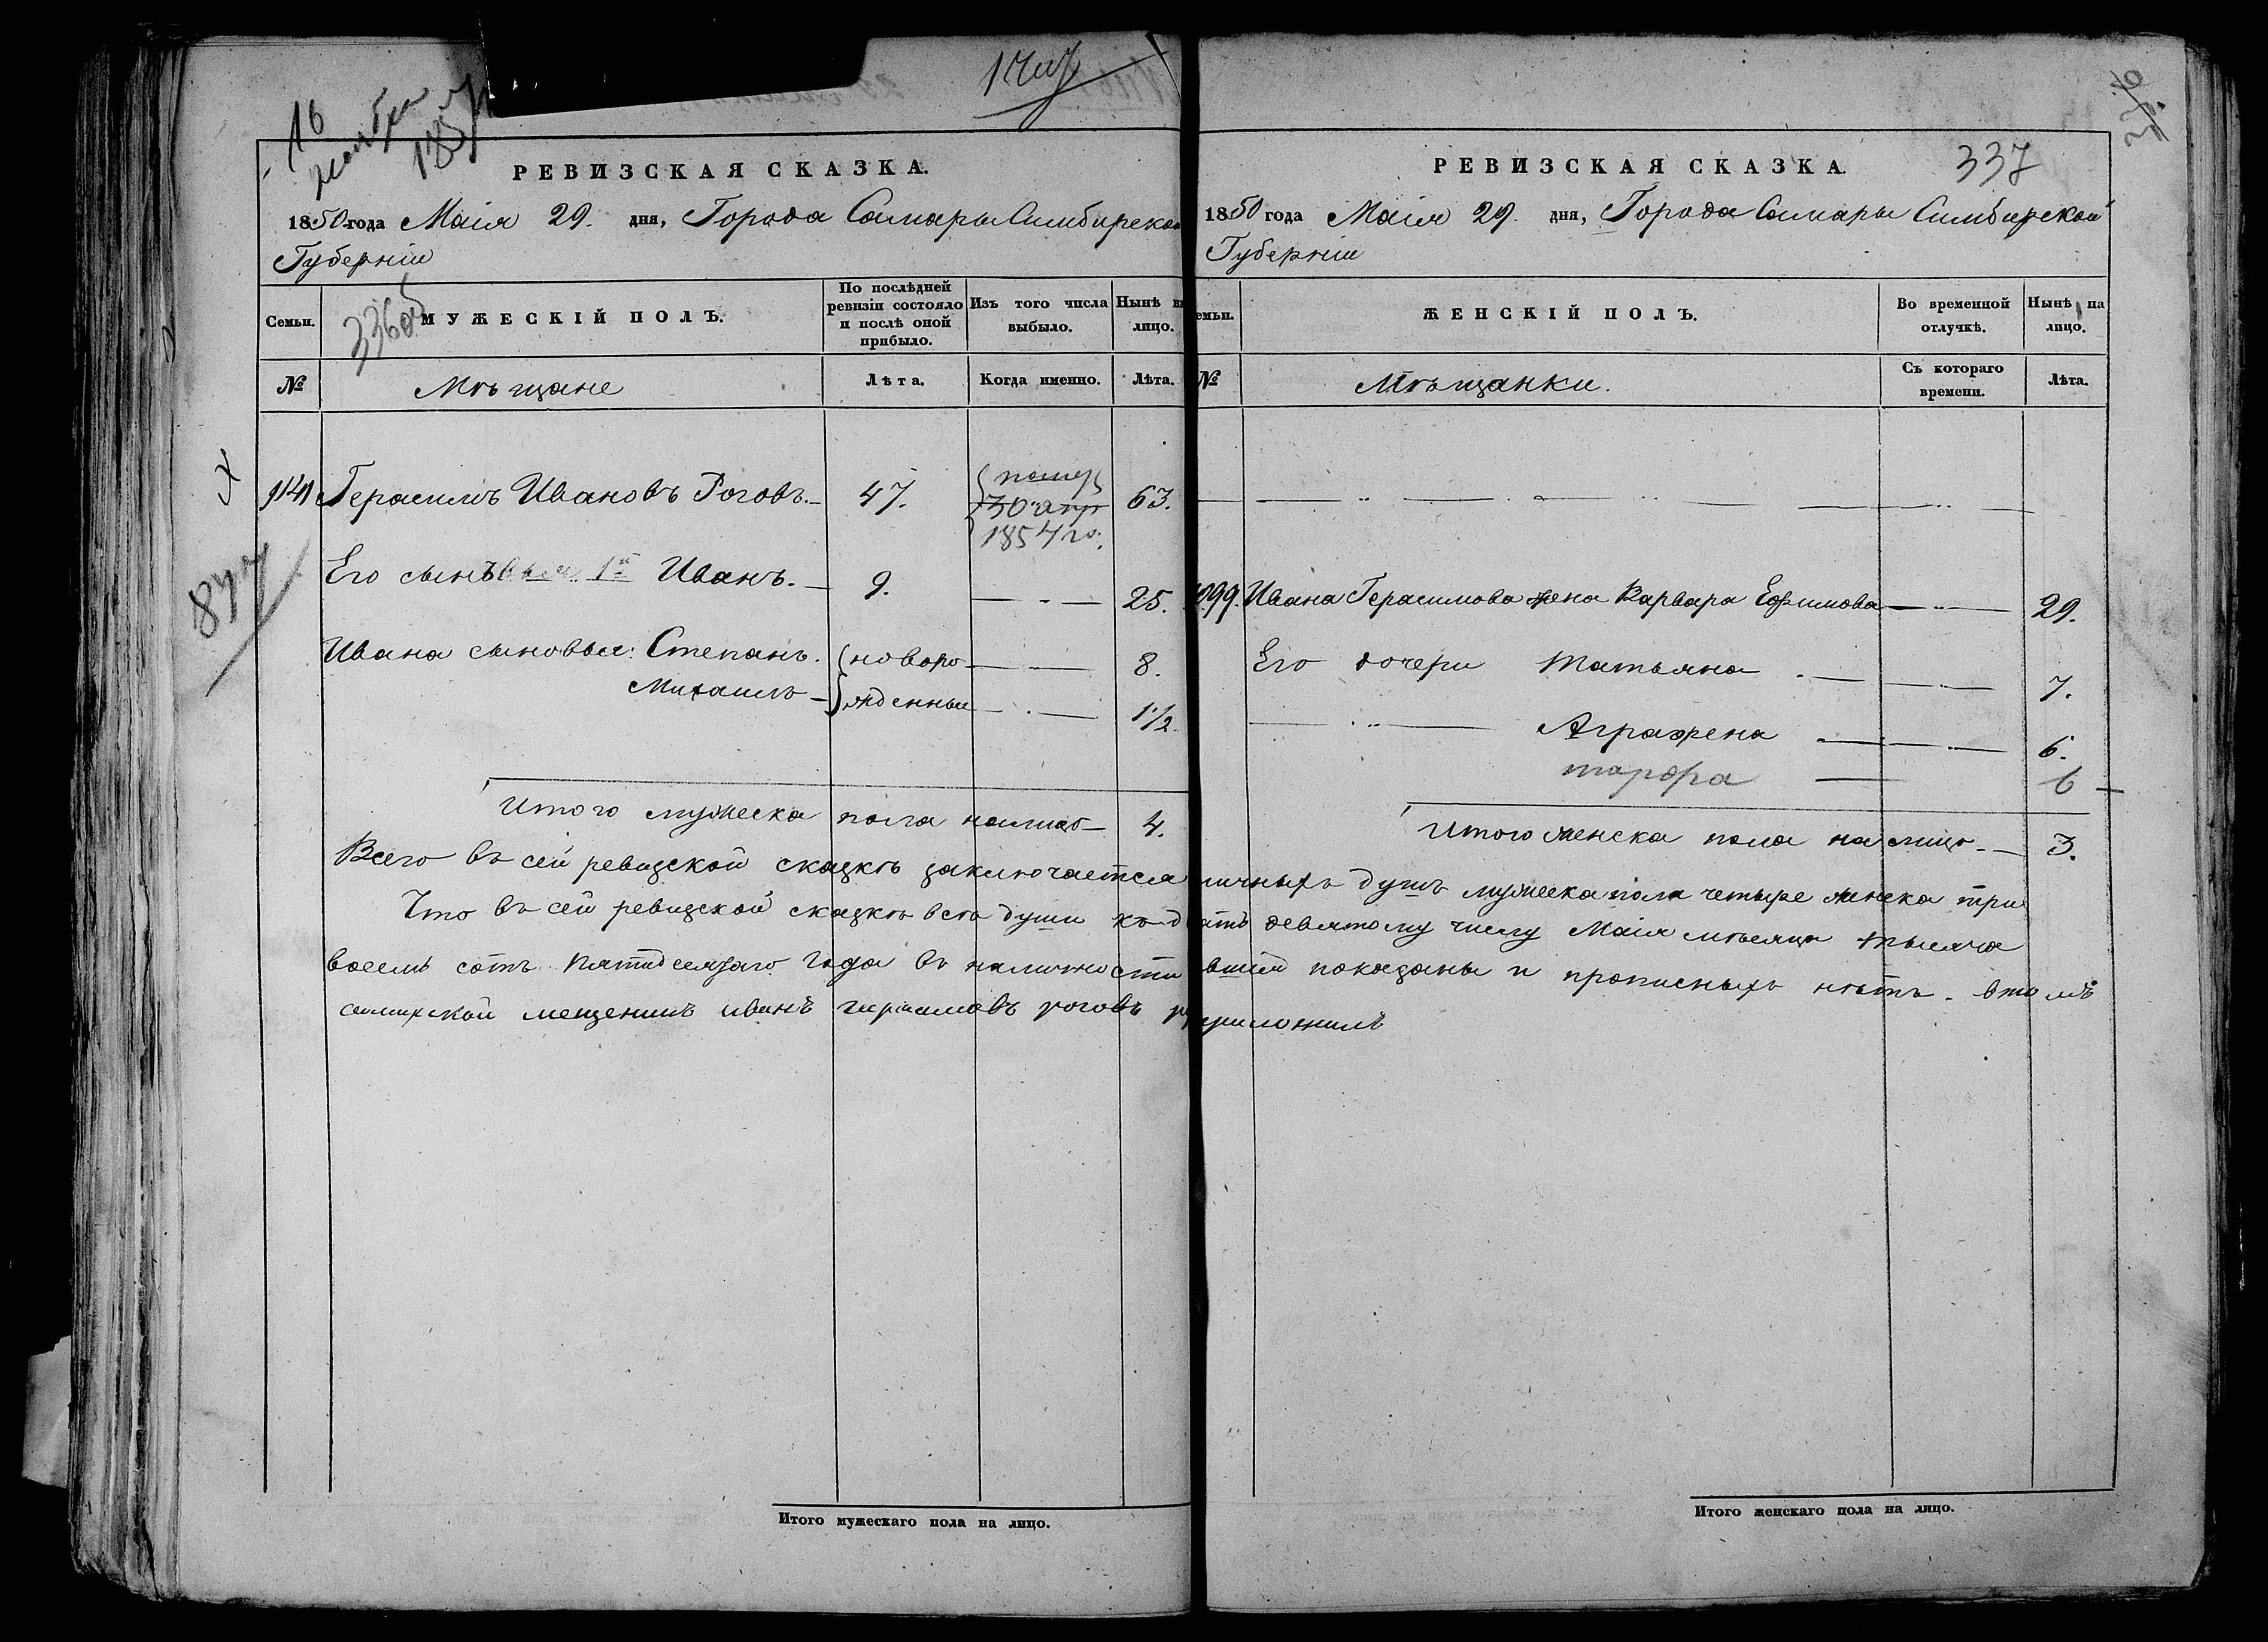 16
ноября
1747
РЕВИЗСКАЯ СКАЗКА.
1850 года Маія 29. дня, Города Самары Симбирской
Губерніи
336об
Семьи.
МУЖЕСКІЙ ПОЛЪ.
По послѣдней ревизіи состояло и послѣ оной прибыло.
Изъ того числа выбыло.
Нынѣ на лицо.
№
Мѣщане
Лѣта.
Когда именно.
Лѣта.
Герасимъ Ивановъ Роговъ.
47.
помер
30 апр
1854 го.
63.
877
Его сынъ 1й Иванъ.
9.
25.
Ивана сыновья: Степанъ.
новоро
8.
Михаилъ
жденныи
1 1/2
Итого мужеска пола налицо
4.
РЕВИЗСКАЯ СКАЗКА.
337
1850 года Маія 29. дня, Города Самары Симбирской
Губерніи
ЖЕНСКІЙ ПОЛЪ.
Во временной отлучкѣ.
Нынѣ на лицо.
№
Мѣщанки.
Съ котораго времени.
Лѣта.
1099. Ивана Герасимова жена Варвара Ефимова
29.
Его дочери Татьяна
7.
Аграфена
6.
6
Итого женска пола на лицо
3.
Всего въ сей ревизской сказкѣ заключается личныхъ душъ мужеска пола четыре женска три
Что въ сей ревизской сказкѣ всѣ души къ девятому числу Маія мѣсяца тысяча
восемь сотъ пятидесятаго года въ наличности показаны и прописныхъ нѣтъ. втомъ
мещенинъ иванъ роговъ приложилъ
Итого мужескаго пола на лицо.
Итого женскаго пола на лицо.